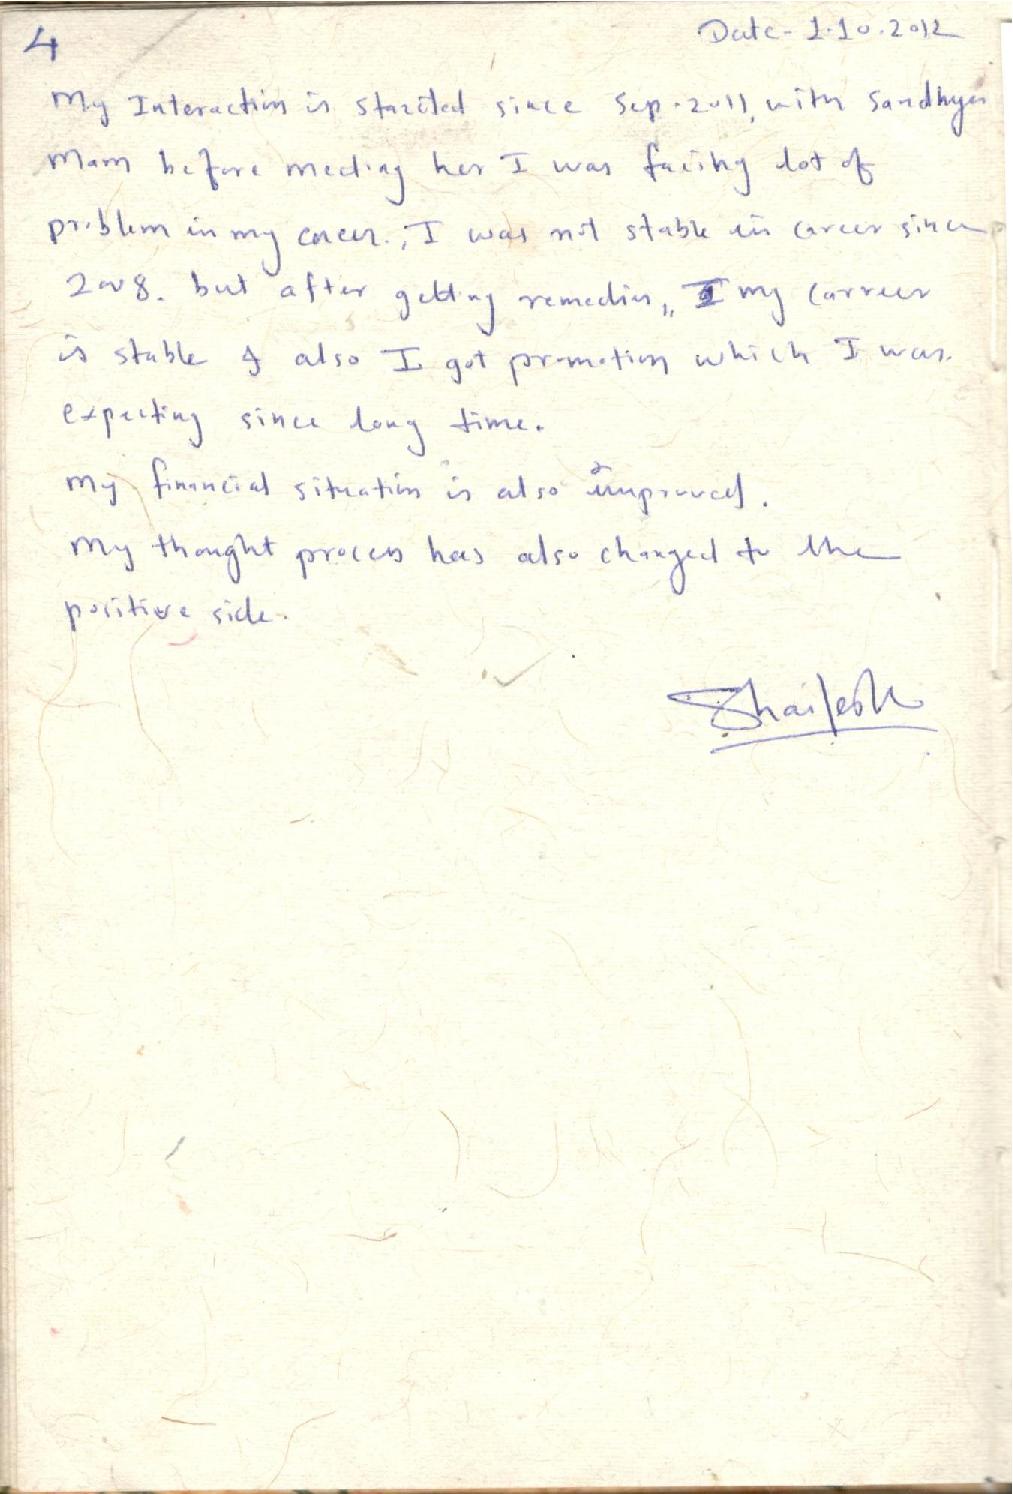 4
Date- 1.10.2012
My Interaction is started since Sep-2011, with Sandhya
Mam before meeting her I was facing lot of
problem in my career., I was not stable in career since
2008. but after getting remedies,, I my carreer
is stable & also I got promotion which I was
expecting since long time.
My financial situation is also improved.
My thought process has also changed to the
positive side.
Shailesh